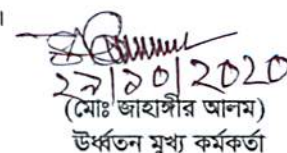 ২৯|১০|২০২০
(মোঃ জাহাঙ্গীর আলম)
উর্ধ্বতন মুখ্য কর্মকর্তা